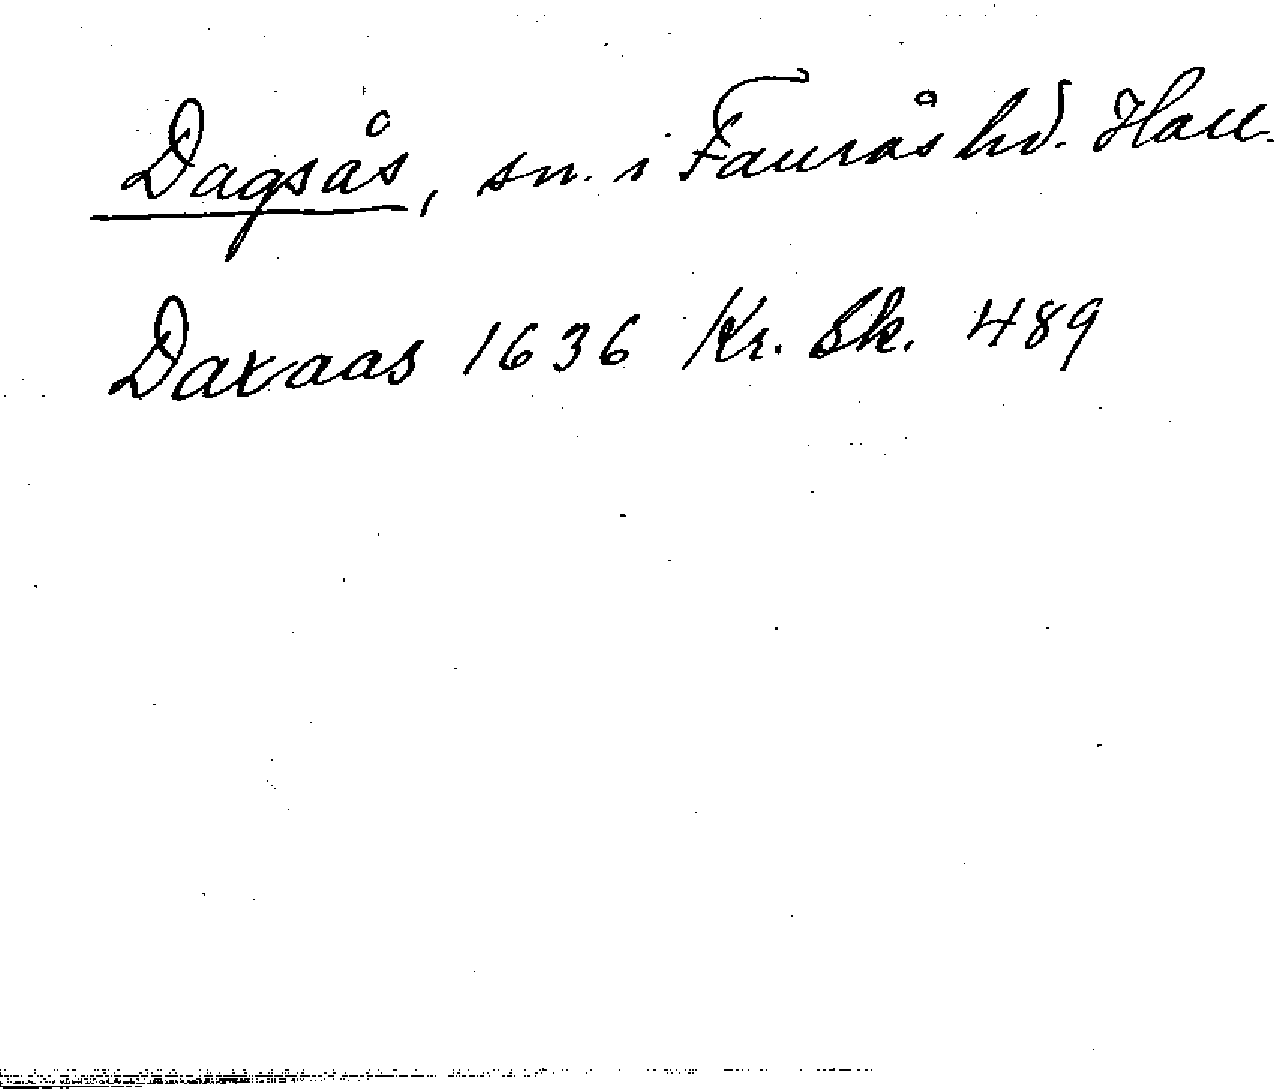 Dagsås, sn. i Faurås hd. Hall.
Daxaas 1636 Kr. Sk. 489